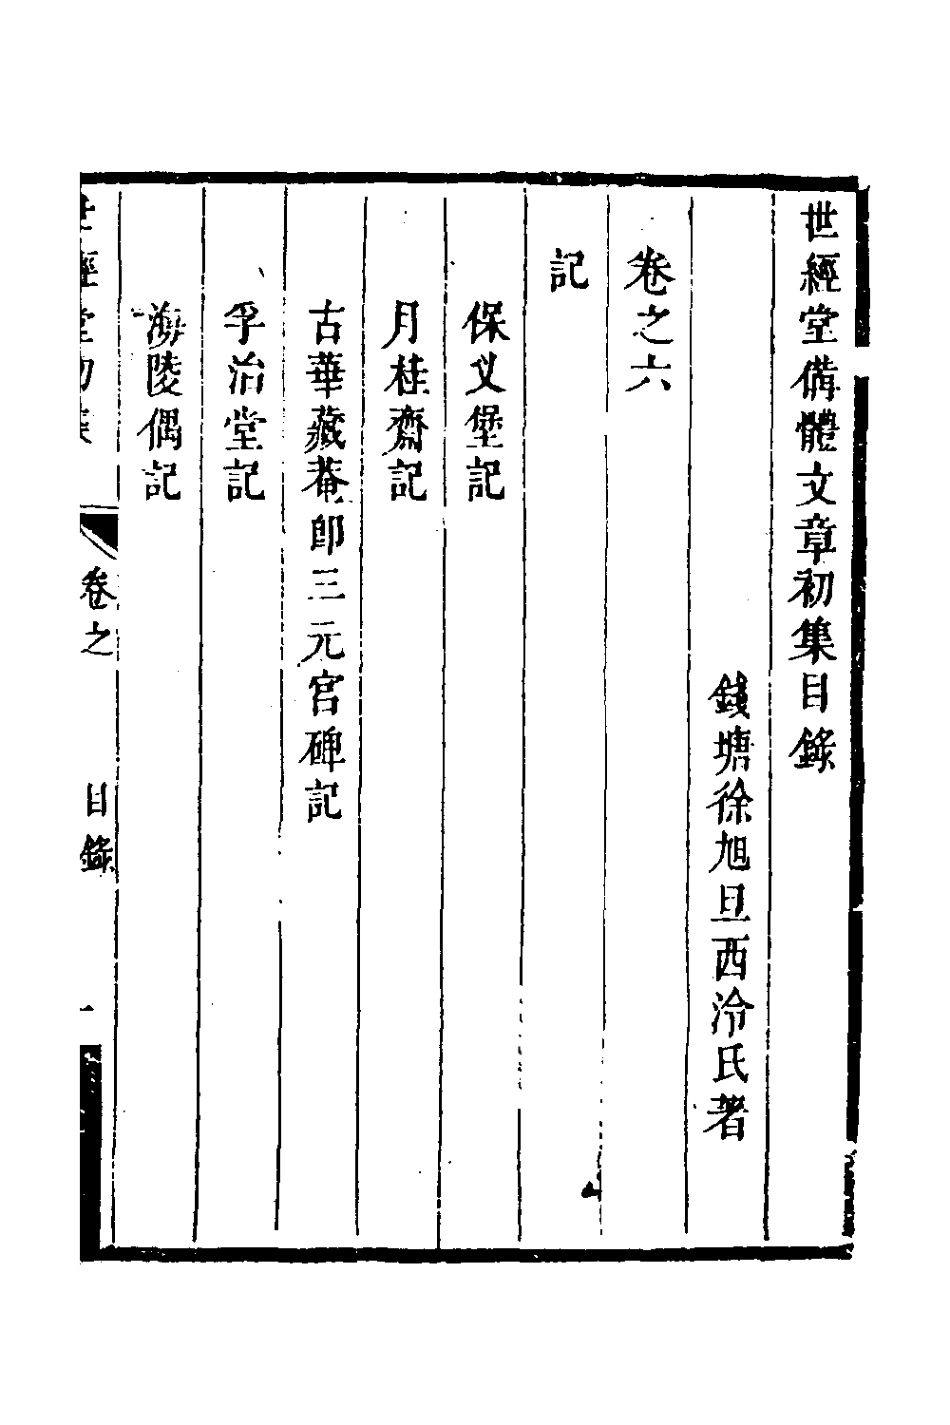 世經堂備體文章初集目錄
錢塘徐旭旦西泠氏著
卷之六
記
保义堡記
月桂齋記
古華藏菴卽三元宮碑記
孚治堂記
海陵偶記
世經堂初集
卷之
目錄
一